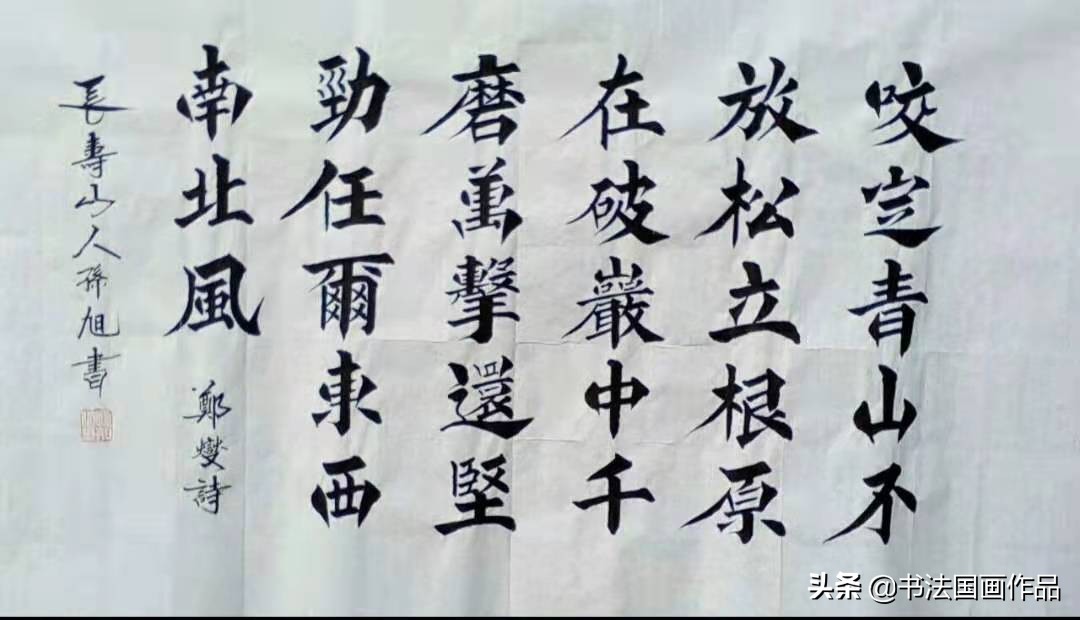 咬定青山不
放松立根原
在破巖中千
磨萬擊還堅
勁任爾東西
南北風
鄭燮詩
長壽山人孫旭書
头条 @书法国画作品